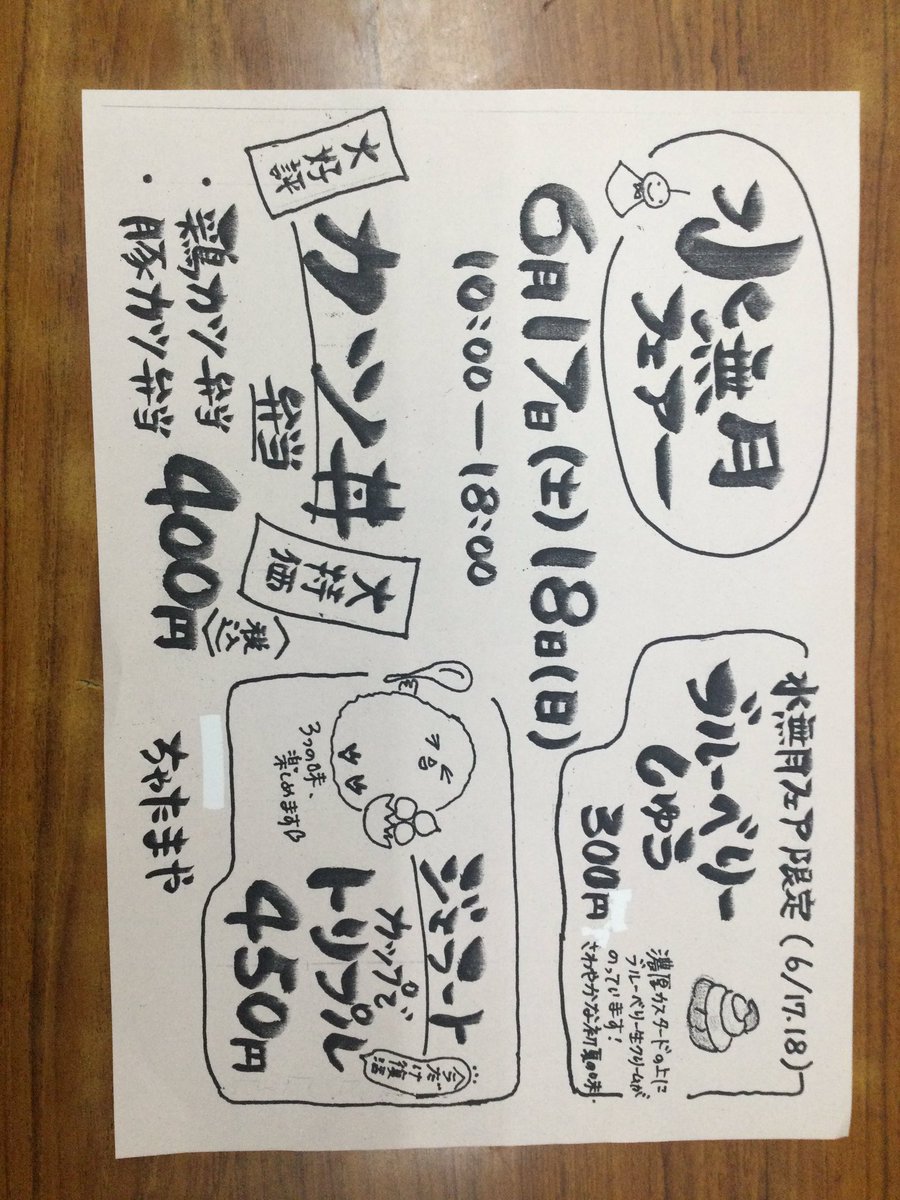 水無月
フェアー
6月17日(土)18日(日)
10:00―18:00
大好評
カツ丼
弁当
・鶏カツ弁当
・豚カツ弁当
400円
(税込)
大特価
水無月フェア限定(6/17.18)
ブルーベリー
しゅう
300円
濃厚カスタードの上に
ブルーベリー生クリームが
のっています!
さわやかな初夏の味.
ジェラート
カップで
トリプル
450円
今だけ復活
3つの味、
楽しめます
ちゃたまや